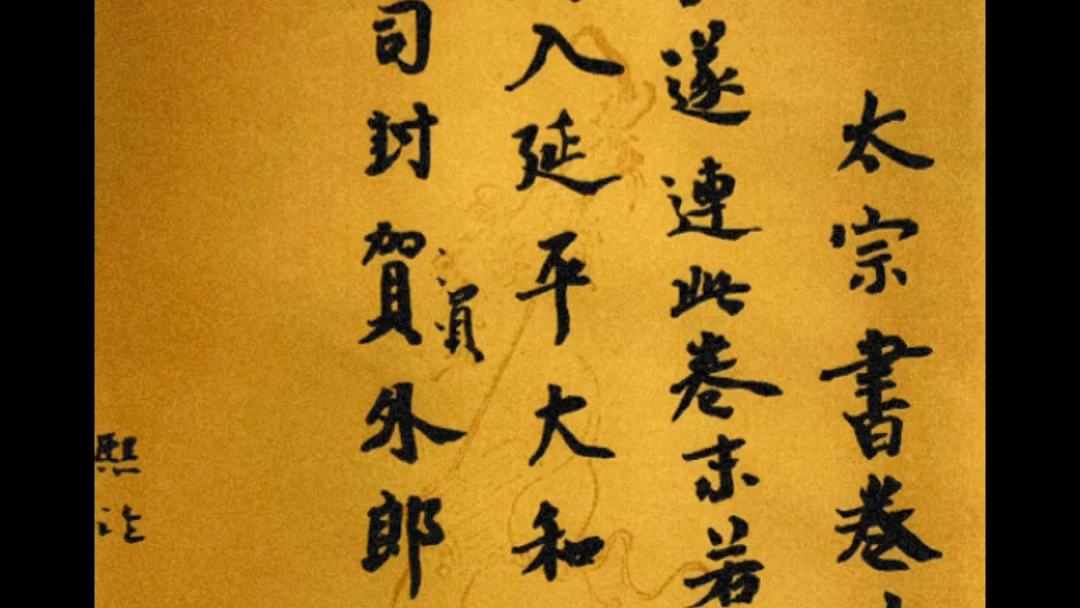 太宗書卷
遂連此卷末若
入延平大和
司封賀外郎
員
熙